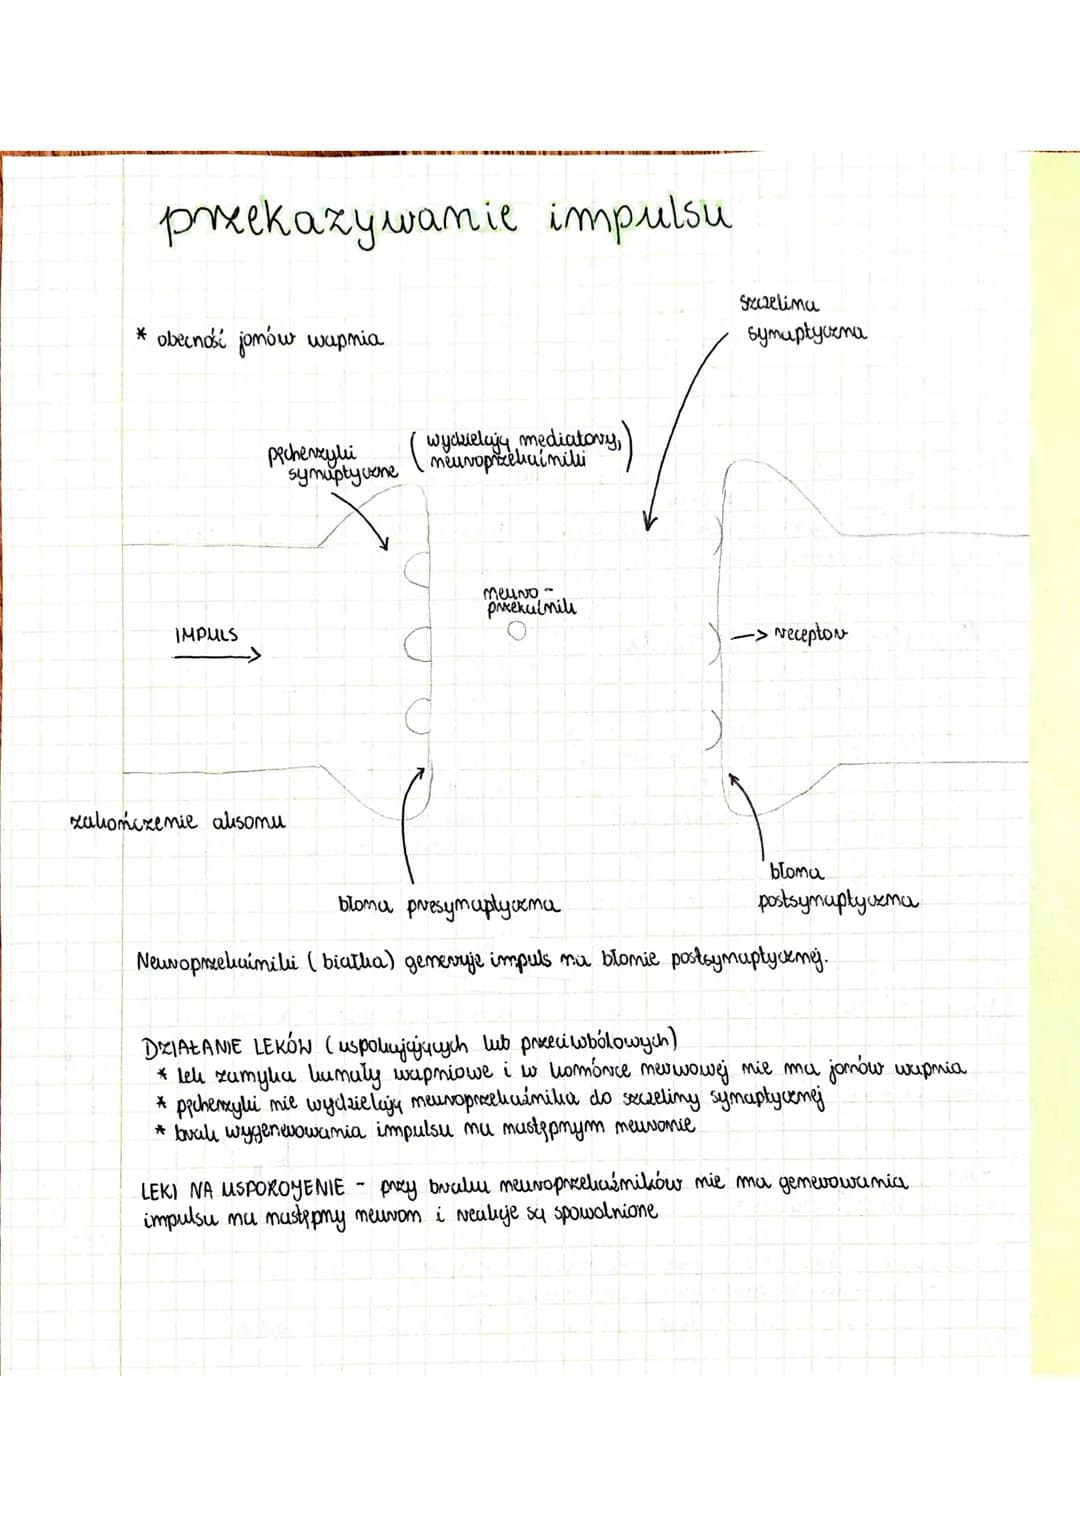 przekazywanie impulsu
* obecność jonów wapnia
szczelina
synaptyczna
pęcherzyki
synaptyczne
(wydzielają mediatory,
neuroprzekaźniki)
neuro-
przekaźnik
IMPULS
-> receptor
zakończenie aksonu
błona presynaptyczna
błona
postsynaptyczna
Neuroprzekaźniki (białka) generuje impuls na błonie postsynaptycznej.
DZIAŁANIE LEKÓW (uspokajających lub przeciwbólowych)
* lek zamyka kanały wapniowe i w komórce nerwowej nie ma jonów wapnia
* pęcherzyki nie wydzielają neuroprzekaźnika do szczeliny synaptycznej
* brak wygenerowania impulsu na następnym neuronie
LEKI NA USPOKOJENIE - przy braku neuroprzekaźników nie ma generowania
impulsu na następny neuron i reakcje są spowolnione